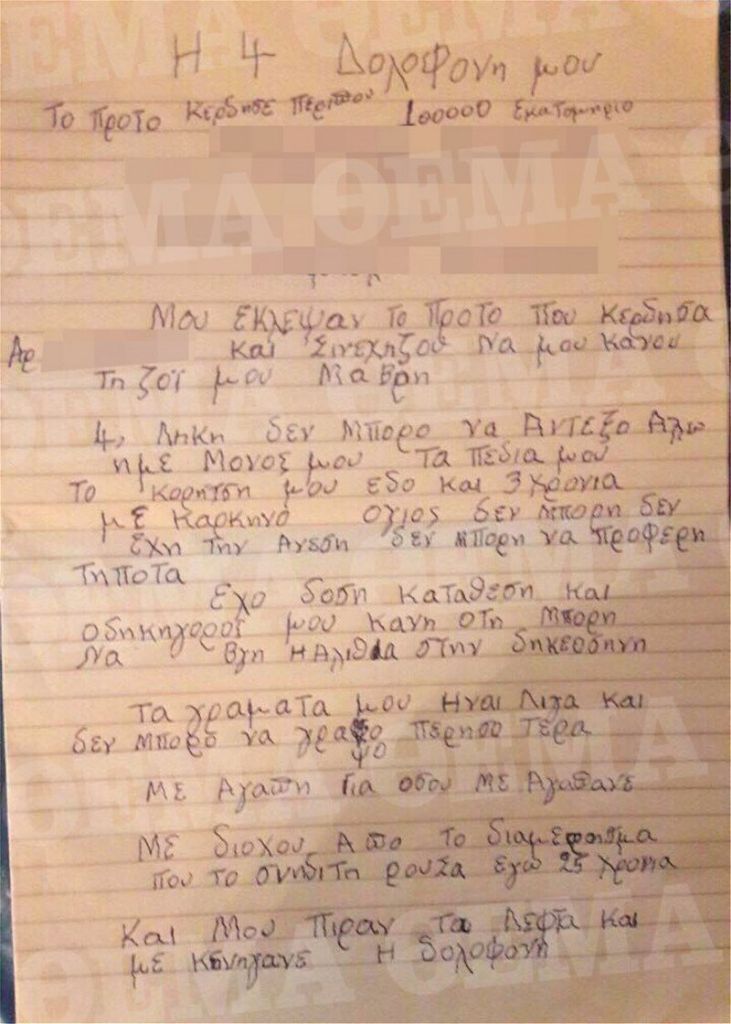 Η 4 Δολοφονη μου
Το Προτο Κερδησε Περιπου 100000 Εκατομηριο
Μου εκλεψαν το Προτο Που κερδησα
Αρ Και Σινεχηζου Να μου κανου
τη ζοϊ μου Μαβρη
4, Ληκη δεν Μπορο να Αντεξο Αλω
ημε Μονος μου Τα πεδια μου
Το κορητση μου εδο και 3 χρονια
με καρκηνο Ογιος δεν Μπορη δεν
εχη την Ανεση δεν Μπορη να προφερη
Τηποτα
Εχο δοση καταθεση και
οδηκηγορος μου κανη οτη Μπορη
Να Βγη Η Αλιθια στην δηκεοσηνη
Τα γραματα μου Ηναι Λιγα και
δεν Μπορο να γραψο Περησο τερα
ψο
Με Αγαπη Για οσου Με Αγαπανε
Με διοχου Απο το διαμερησμα
που το συνηδιτη ρουσα εγω 25 χρονια
Και Μου Πιραν τα Λεφτα και
με κηνηγανε Η δολοφονη
ΘΕΜΑ ΘΕΜΑ